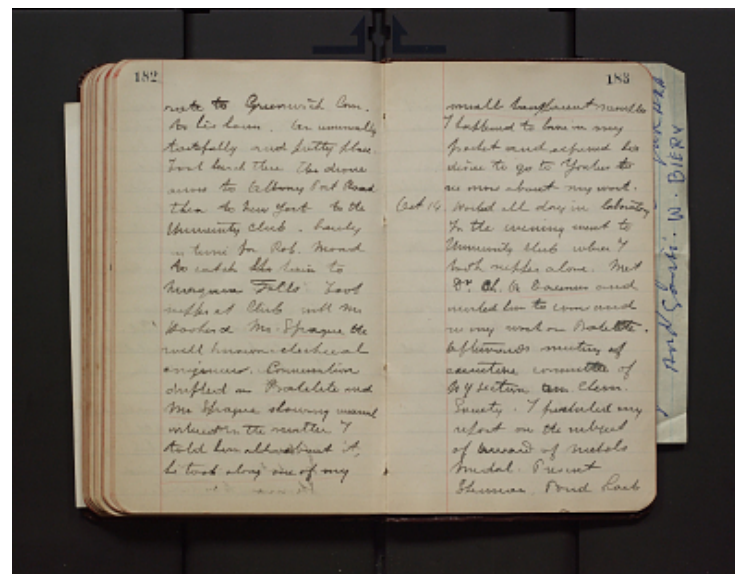 182
route to Greenwich Con.
to his house. An unusually
tastefully and pretty place.
Took lunch there then drove
across to Albany Post Road
then to New York to the
University Club. barely
in time for Rob. Mond
to catch his train to
Niagara Falls. Took
supper at Club with Mr
Mr. Sprague the
well known electrical
engineer. Conversation
drifted on Bakelite and
Mr Sprague showing unusual
interest in the matter I
told him all about it,
he took along one of my
183
small transparent samples
I happened to have in my
pocket and expressed his
desire to go to Yonkers to
see more about my work.
Oct 14. Worked all day in laboratory
In the evening went to
University Club where I
took supper alone. Met
Dr. Ch. and
invited him to come and
see my work on Bakelite.
Afterwards meeting of
executive committee of
NY section Am. Chem.
Society. I presented my
report on the subject
of award of Nichols
medal. Present
Sherman, Pond Loeb
W. BIERY